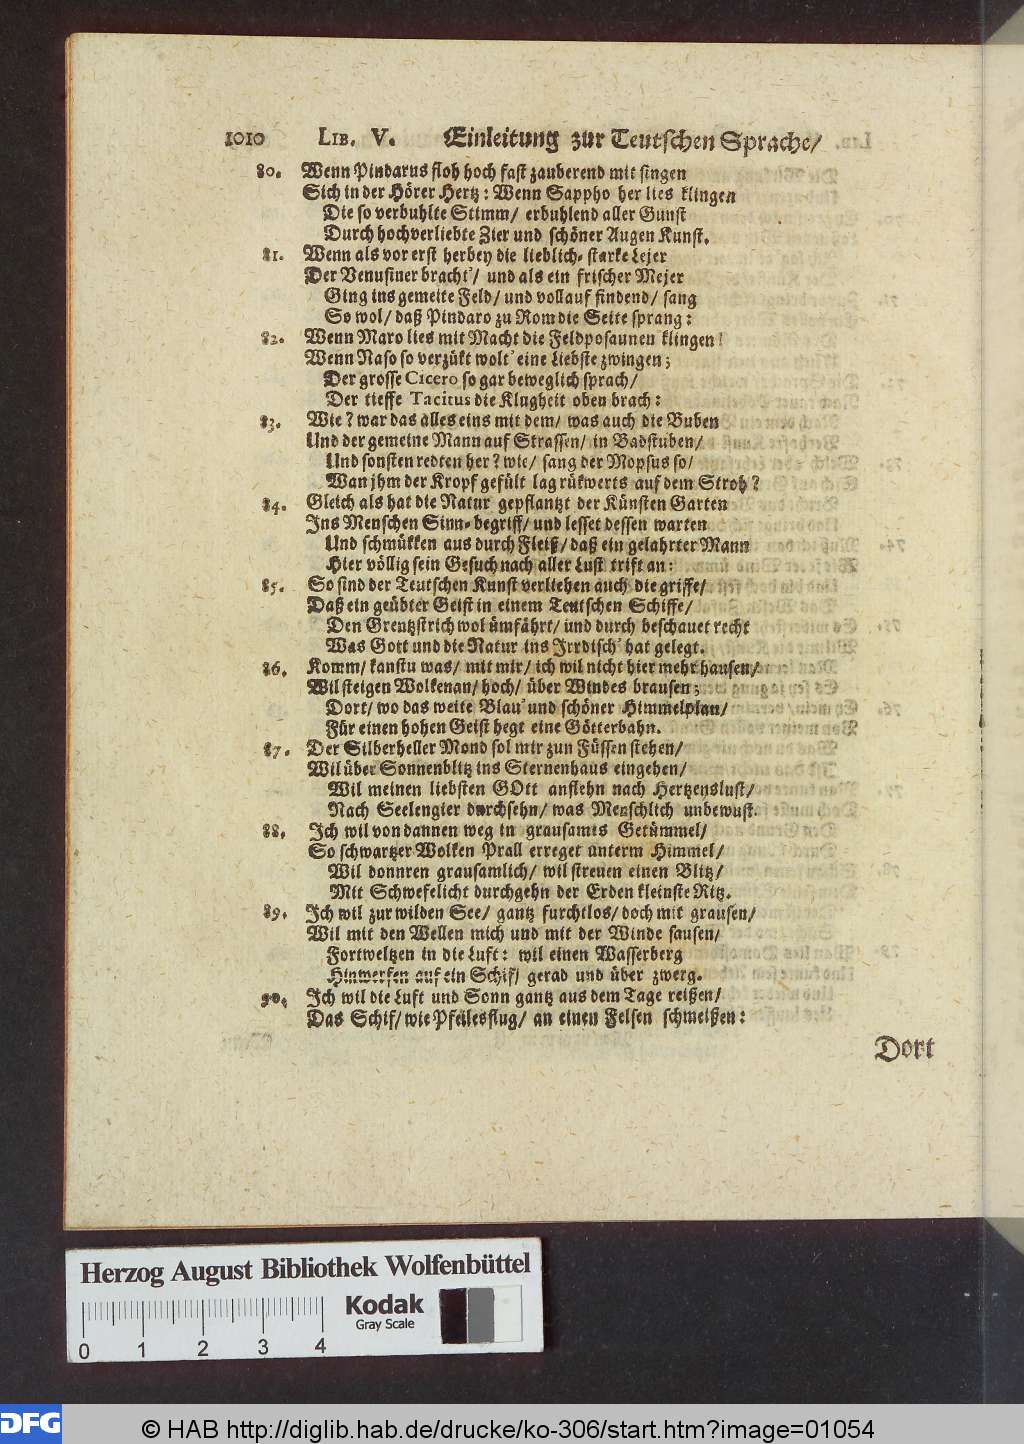 1010 LIB. V. Einleitung zur Teutschen Sprache/
80. Wenn Pindarus floh hoch fast zauberend mit singen
Sich in der Hörer Hertz: Wenn Sappho her lies klingen
Die so verbuhlte Stimm/ erbuhlend aller Gunst
Durch hochverliebte Zier und schöner Augen Kunst.
81. Wenn als vor erst herbey die lieblich-starke Lejer
Der Venusiner bracht'/ und als ein frischer Mejer
Ging ins gemeite Feld/ und vollauf findend/ sang
So wol/ daß Pindaro zu Rom die Seite sprang:
82. Wenn Maro lies mit Macht die Feldposaunen klingen!
Wenn Naso so verzükt wolt' eine Liebste zwingen;
Der grosse Cicero so gar beweglich sprach/
Der tieffe Tacitus die Klugheit oben brach:
83. Wie? war das alles eins mit dem/ was auch die Buben
Und der gemeine Mann auf Strassen/ in Badstuben/
Und sonsten redten her? wie/ sang der Mopsus so/
Wan jhm der Kropf gefült lag rükwerts auf dem Stroh?
84. Gleich als hat die Natur gepflantzt der Künsten Garten
Ins Menschen Sinn-begriff/ und lesset dessen warten
Und schmükken aus durch Fleiß/ daß ein gelahrter Mann
Hier völlig sein Gesuch nach aller Lust trift an:
85. So sind der Teutschen Kunst verliehen auch die griffe/
Daß ein geübter Geist in einem Teutschen Schiffe/
Den Grentzstrich wol ümfährt/ und durch beschauet recht
Was Gott und die Natur ins Irrdisch' hat gelegt.
86. Komm/ kanstu was/ mit mir/ ich wil nicht hier mehr hausen/
Wil steigen Wolkenan/ hoch/ über Windes brausen;
Dort/ wo das weite Blau' und schöner Himmelplan/
Für einen hohen Geist hegt eine Götterbahn.
87. Der Silberheller Mond sol mir zun Füssen stehen/
Wil über Sonnenblitz ins Sternenhaus eingehen/
Wil meinen liebsten GOtt anflehn nach Hertzenslust/
Nach Seelengier durchsehn/ was Menschlich unbewust.
88. Ich wil von dannen weg in grausames Getümmel/
So schwartzer Wolken Prall erreget unterm Himmel/
Wil donnren grausamlich/ wil streuen einen Blitz/
Mit Schwefelicht durchgehn der Erden kleinste Ritz.
89. Ich wil zur wilden See/ gantz furchtlos/ doch mit grausen/
Wil mit den Wellen mich und mit der Winde sausen/
Fortweltzen in die Luft: wil einen Wasserberg
Hinwerfen auf ein Schif/ gerad und über zwerg.
90. Ich wil die Luft und Sonn gantz aus dem Tage reißen/
Das Schif/ wie Pfeilesflug/ an einen Felsen schmeißen:
Dort
Herzog August Bibliothek Wolfenbüttel
Kodak
Gray Scale
0 1 2 3 4
DFG © HAB http://diglib.hab.de/drucke/ko-306/start.htm?image=01054